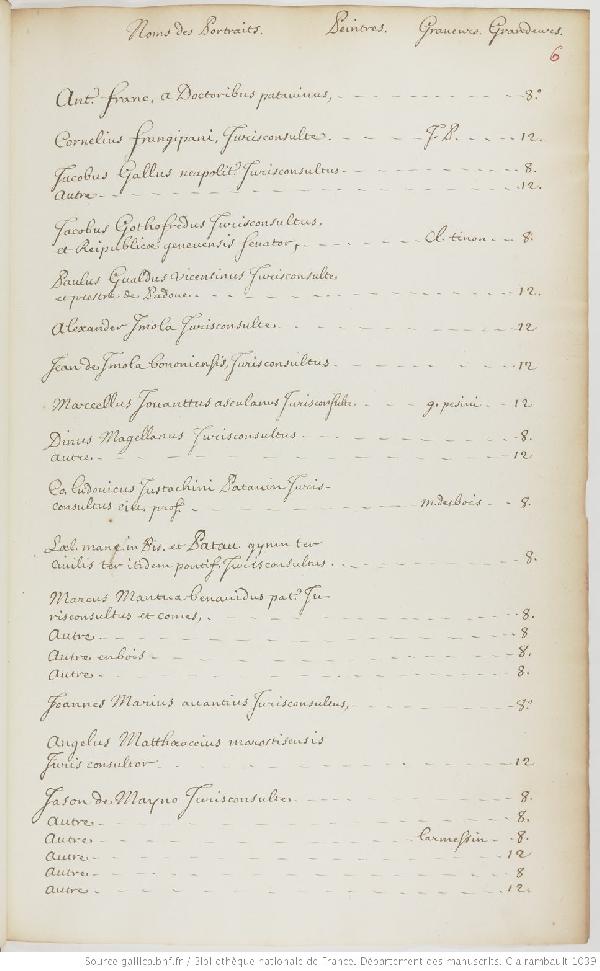 Noms des Portraits. Peintres. Graveurs. Grandeurs.
6
Ant.º franc, a Doctoribus patavinus, 8.º
Cornelius frangipani, Jurisconsulte. J. B. 12.
Jacobus Gallus neapolit.s Jurisconsultus 8.
autre 12.
Jacobus Gothofredus Jurisconsultus.
et Reipublicæ genevensis senator, Cl. tinon 8.
Paulus Gualdus vicensinus Jurisconsulte
et prestre de Padoue. 12.
Alexander Imola Jurisconsulte. 12
Jean de Imola bononiensis, Jurisconsultus 12
Marcellus Jouanttus asculanus Jurisconsulte. g. pesini 12
Dinus Magellanus Jurisconsultus 8.
autre. 12
Co. ludovicus Justachini Patavin Juris-
consultus prof. m. desbois 8.
Læl. manc. in Pis. et Patau. gymn ter
Civilis ter itidem pontif. Jurisconsultus. 8.
Marcus Mantua benavidus pat.s Ju-
risconsultus et comes, 8.
Autre 8
Autre en bois 8.
Autre 8.
Joannes Marius avantius Jurisconsultus, 8.º
Angelus Matthæoceius marostisensis
Juris consultor 12
Jason de Mayno Jurisconsulte. 8.
Autre 8.
Autre Larmessin 8.
autre 12
autre 8
autre 12.
Source gallica.bnf.fr / Bibliothèque nationale de France. Département des manuscrits. Clairambault 1039